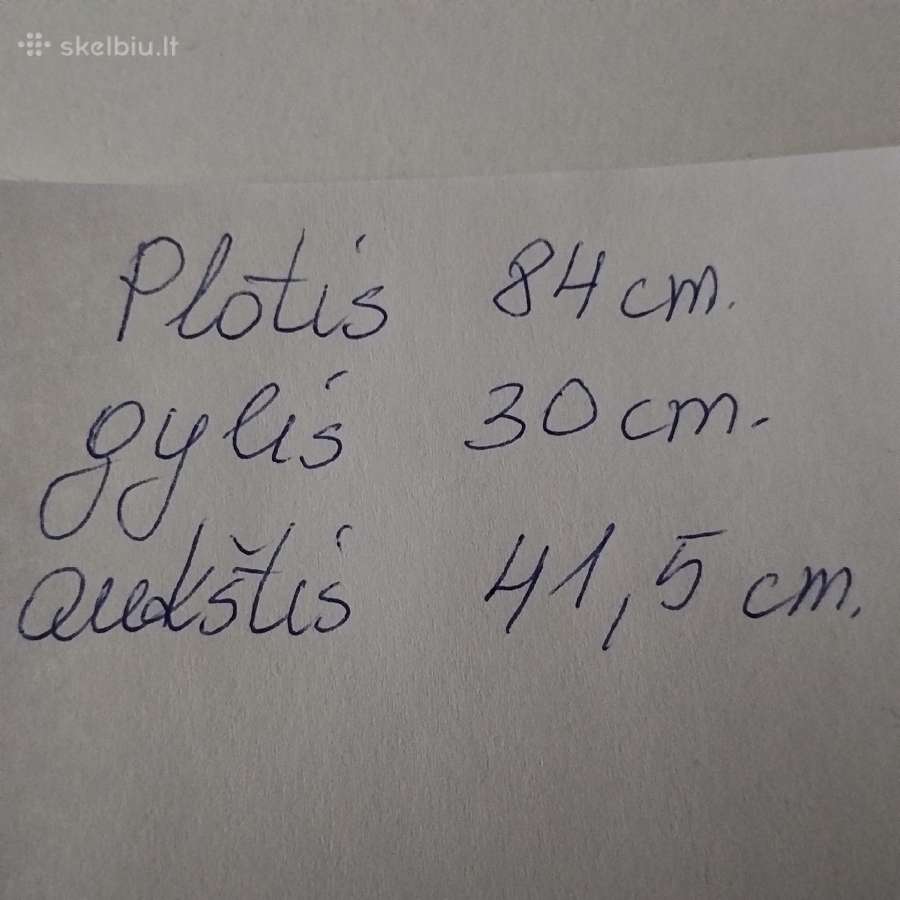 skelbiu.lt
Plotis 84 cm.
gylis 30 cm.
aukštis 41,5 cm.